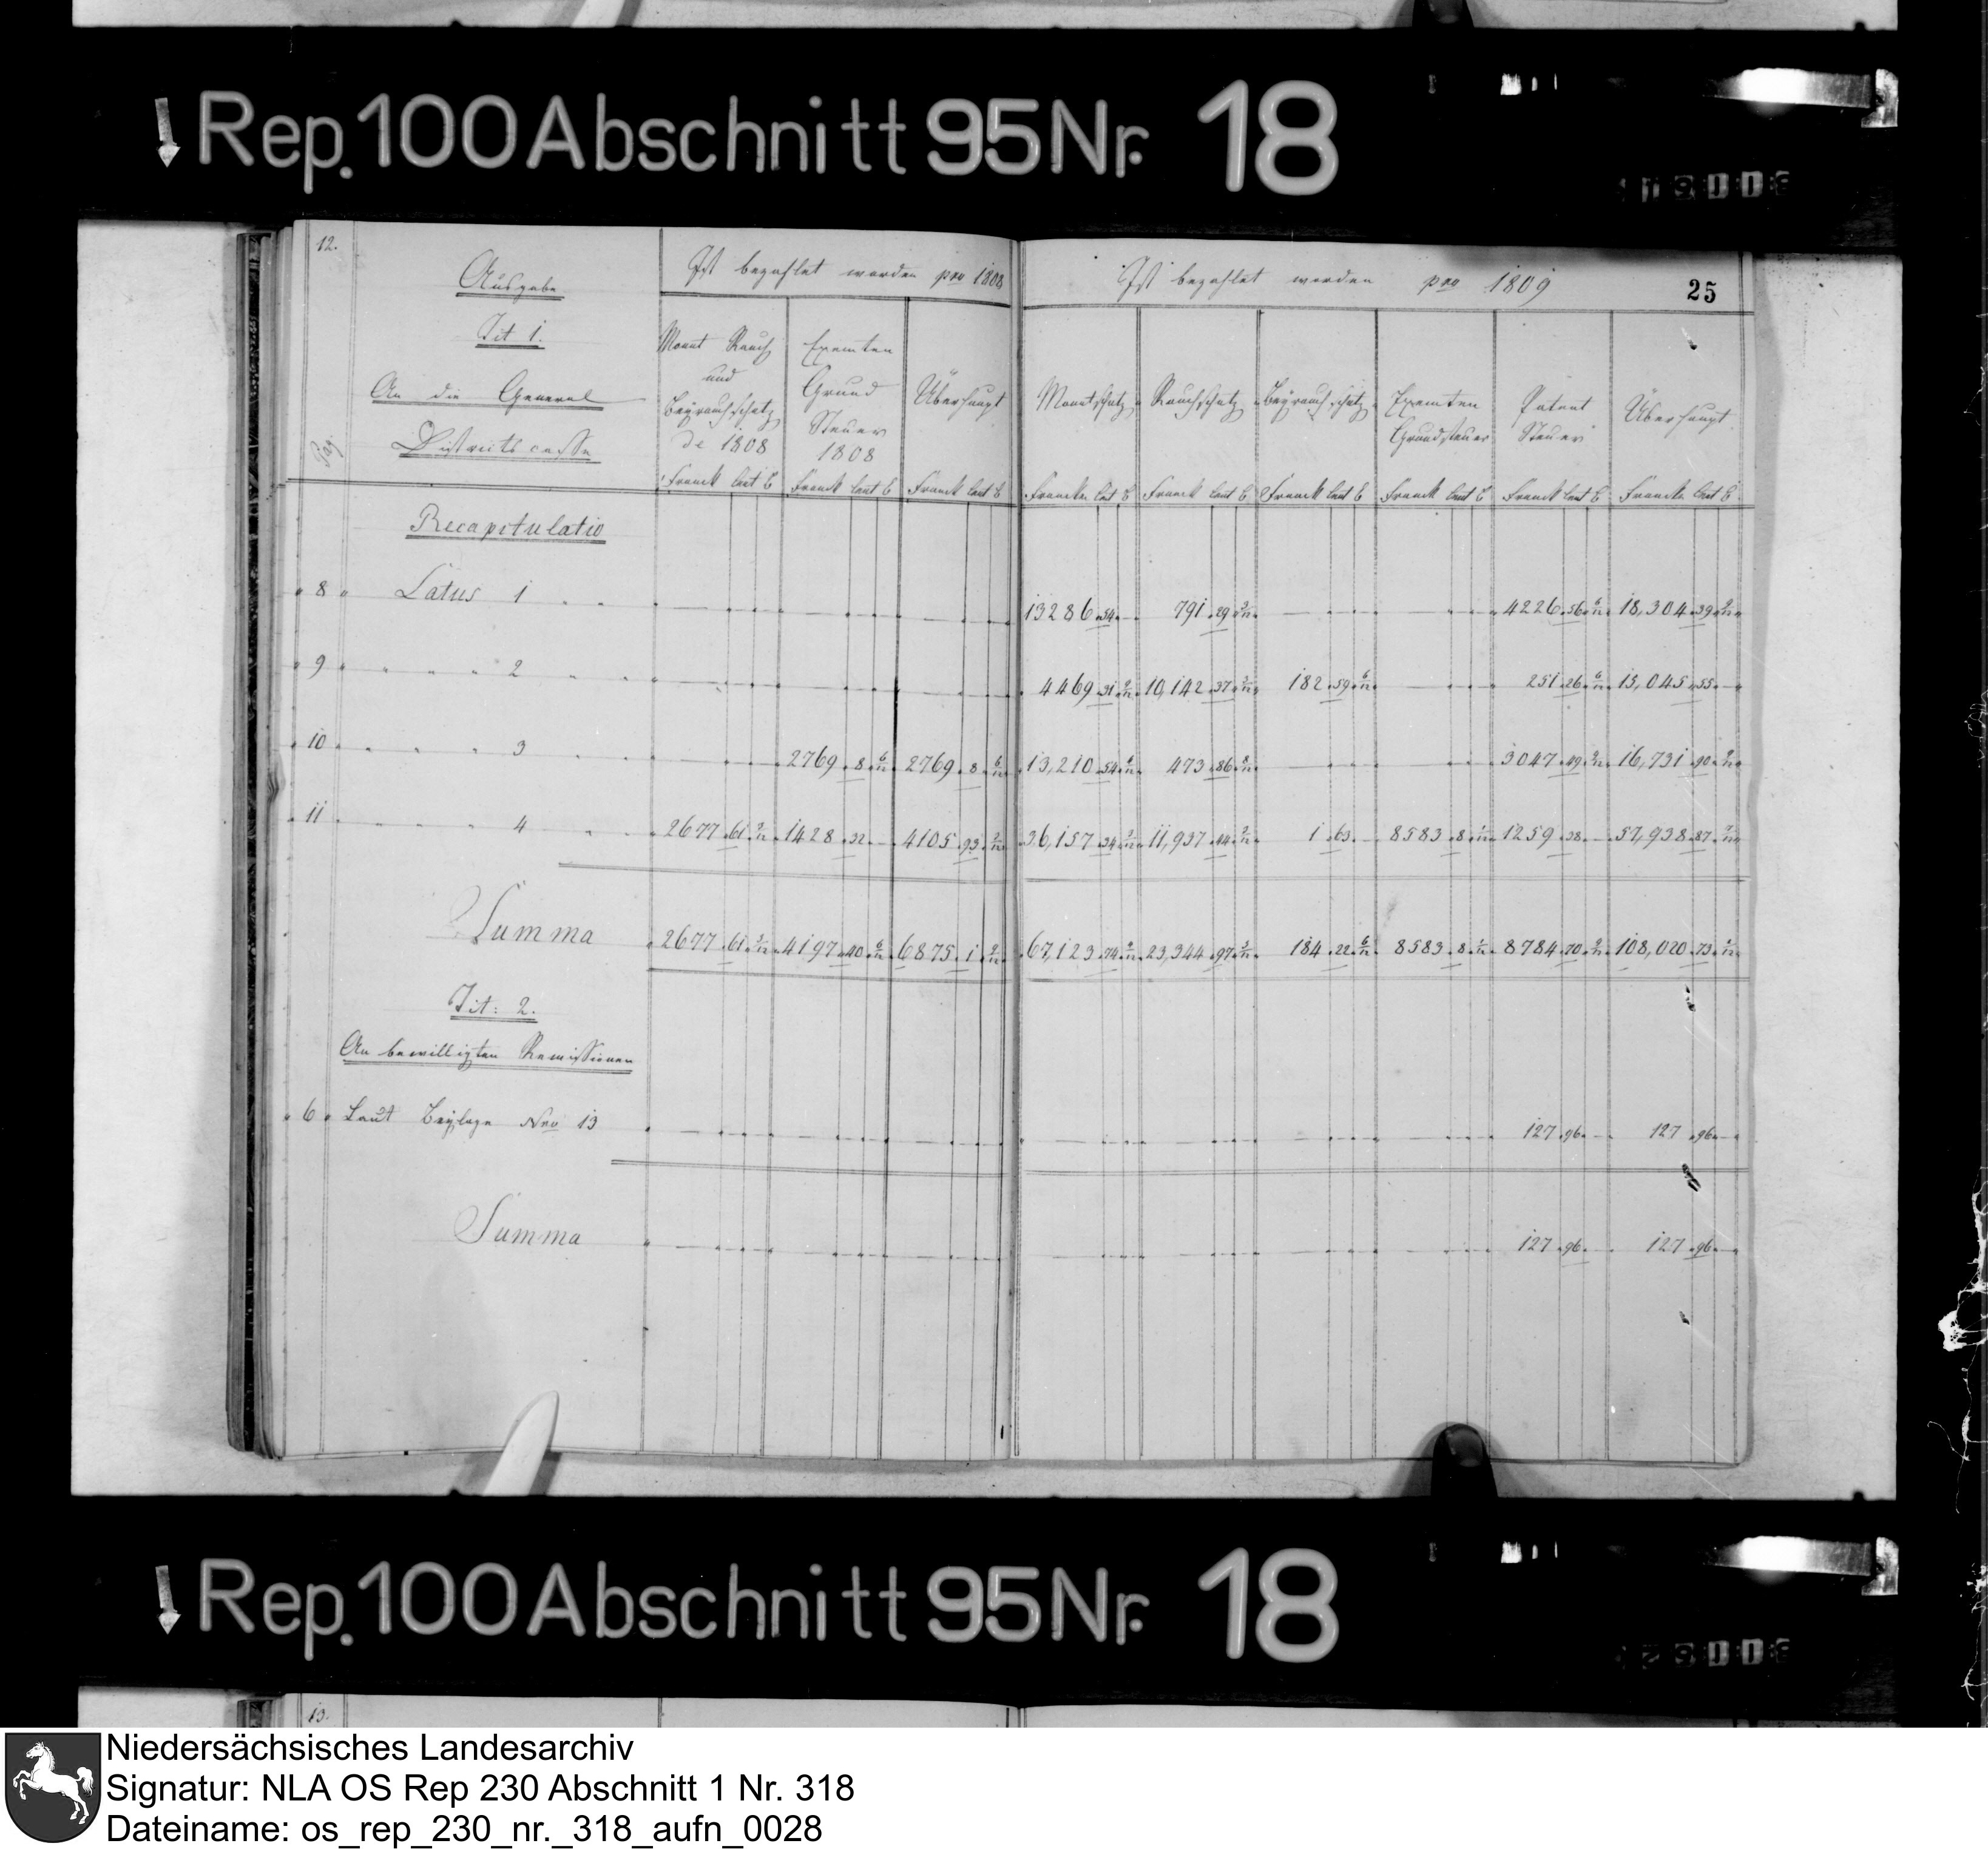 Rep.100Abschnitt95Nr. 18
12.
Ausgabe
Tit 1.
An die General
Districts casse
Pag
Ist bezahlet worden pro 1808
Ist bezahlet worden pro 1809
25
Monat Rauch
und
Beyrauchschatz
de 1808
Exemten
Grund
Steuer
1808
Überhaupt
Monatschatz
Rauchschatz
Beyrauchschatz
Exemten
Grundsteuer
Patent
Steuer
Überhaupt
Franck Cent
Franck Cent
Franck Cent
Francken Cent
Franck Cent
Franck Cent
Franck Cent
Franck Cent
Francken Cent
Recapitulatio
8 Latus 1 13286 54 791 29 4226 56 18,304 39
9 " " 2 4469 31 10,142 37 182 59 251 26 15,045 55
10 " " 3 2769 8 2769 8 13,210 54 473 86 3047 49 16,731 90
11 " " 4 2677 61 1428 32 4105 93 36,157 34 11,937 44 1 63 8583 8 1259 38 57,938 87
Summa 2677 61 4197 40 6875 1 67,123 74 23,344 97 184 22 8583 8 8784 70 108,020 73
Tit: 2.
An bewilligten Remissionen
6 Laut Beylage Nro 13 127 96 127 96
Summa 127 96 127 96
Rep.100Abschnitt95Nr. 18
13.
Niedersächsisches Landesarchiv
Signatur: NLA OS Rep 230 Abschnitt 1 Nr. 318
Dateiname: os_rep_230_nr._318_aufn_0028